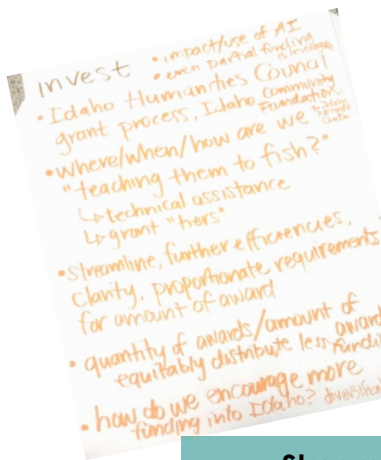 invest
• impact/use of AI
• even partial funding
is
• Idaho Humanities Council
grant process, Idaho Community
Foundation
• Where/when/how are we
"teaching them to fish?"
↳ technical assistance
↳ grant "hers"
• Streamline, further efficiencies,
clarity, proportionate requirements
for amount of award
• quantity of awards/amount of
award
equitably distribute less funding
• how do we encourage more
funding into Idaho?